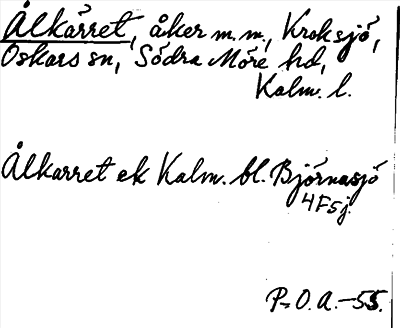 Ålkärret, åker m.m., Kroksjö,
Oskars sn, Södra Möre hd,
Kalm. l.
Ålkarret ek Kalm. bl. Björnasjö
4F5j.
P-O.A.-55.